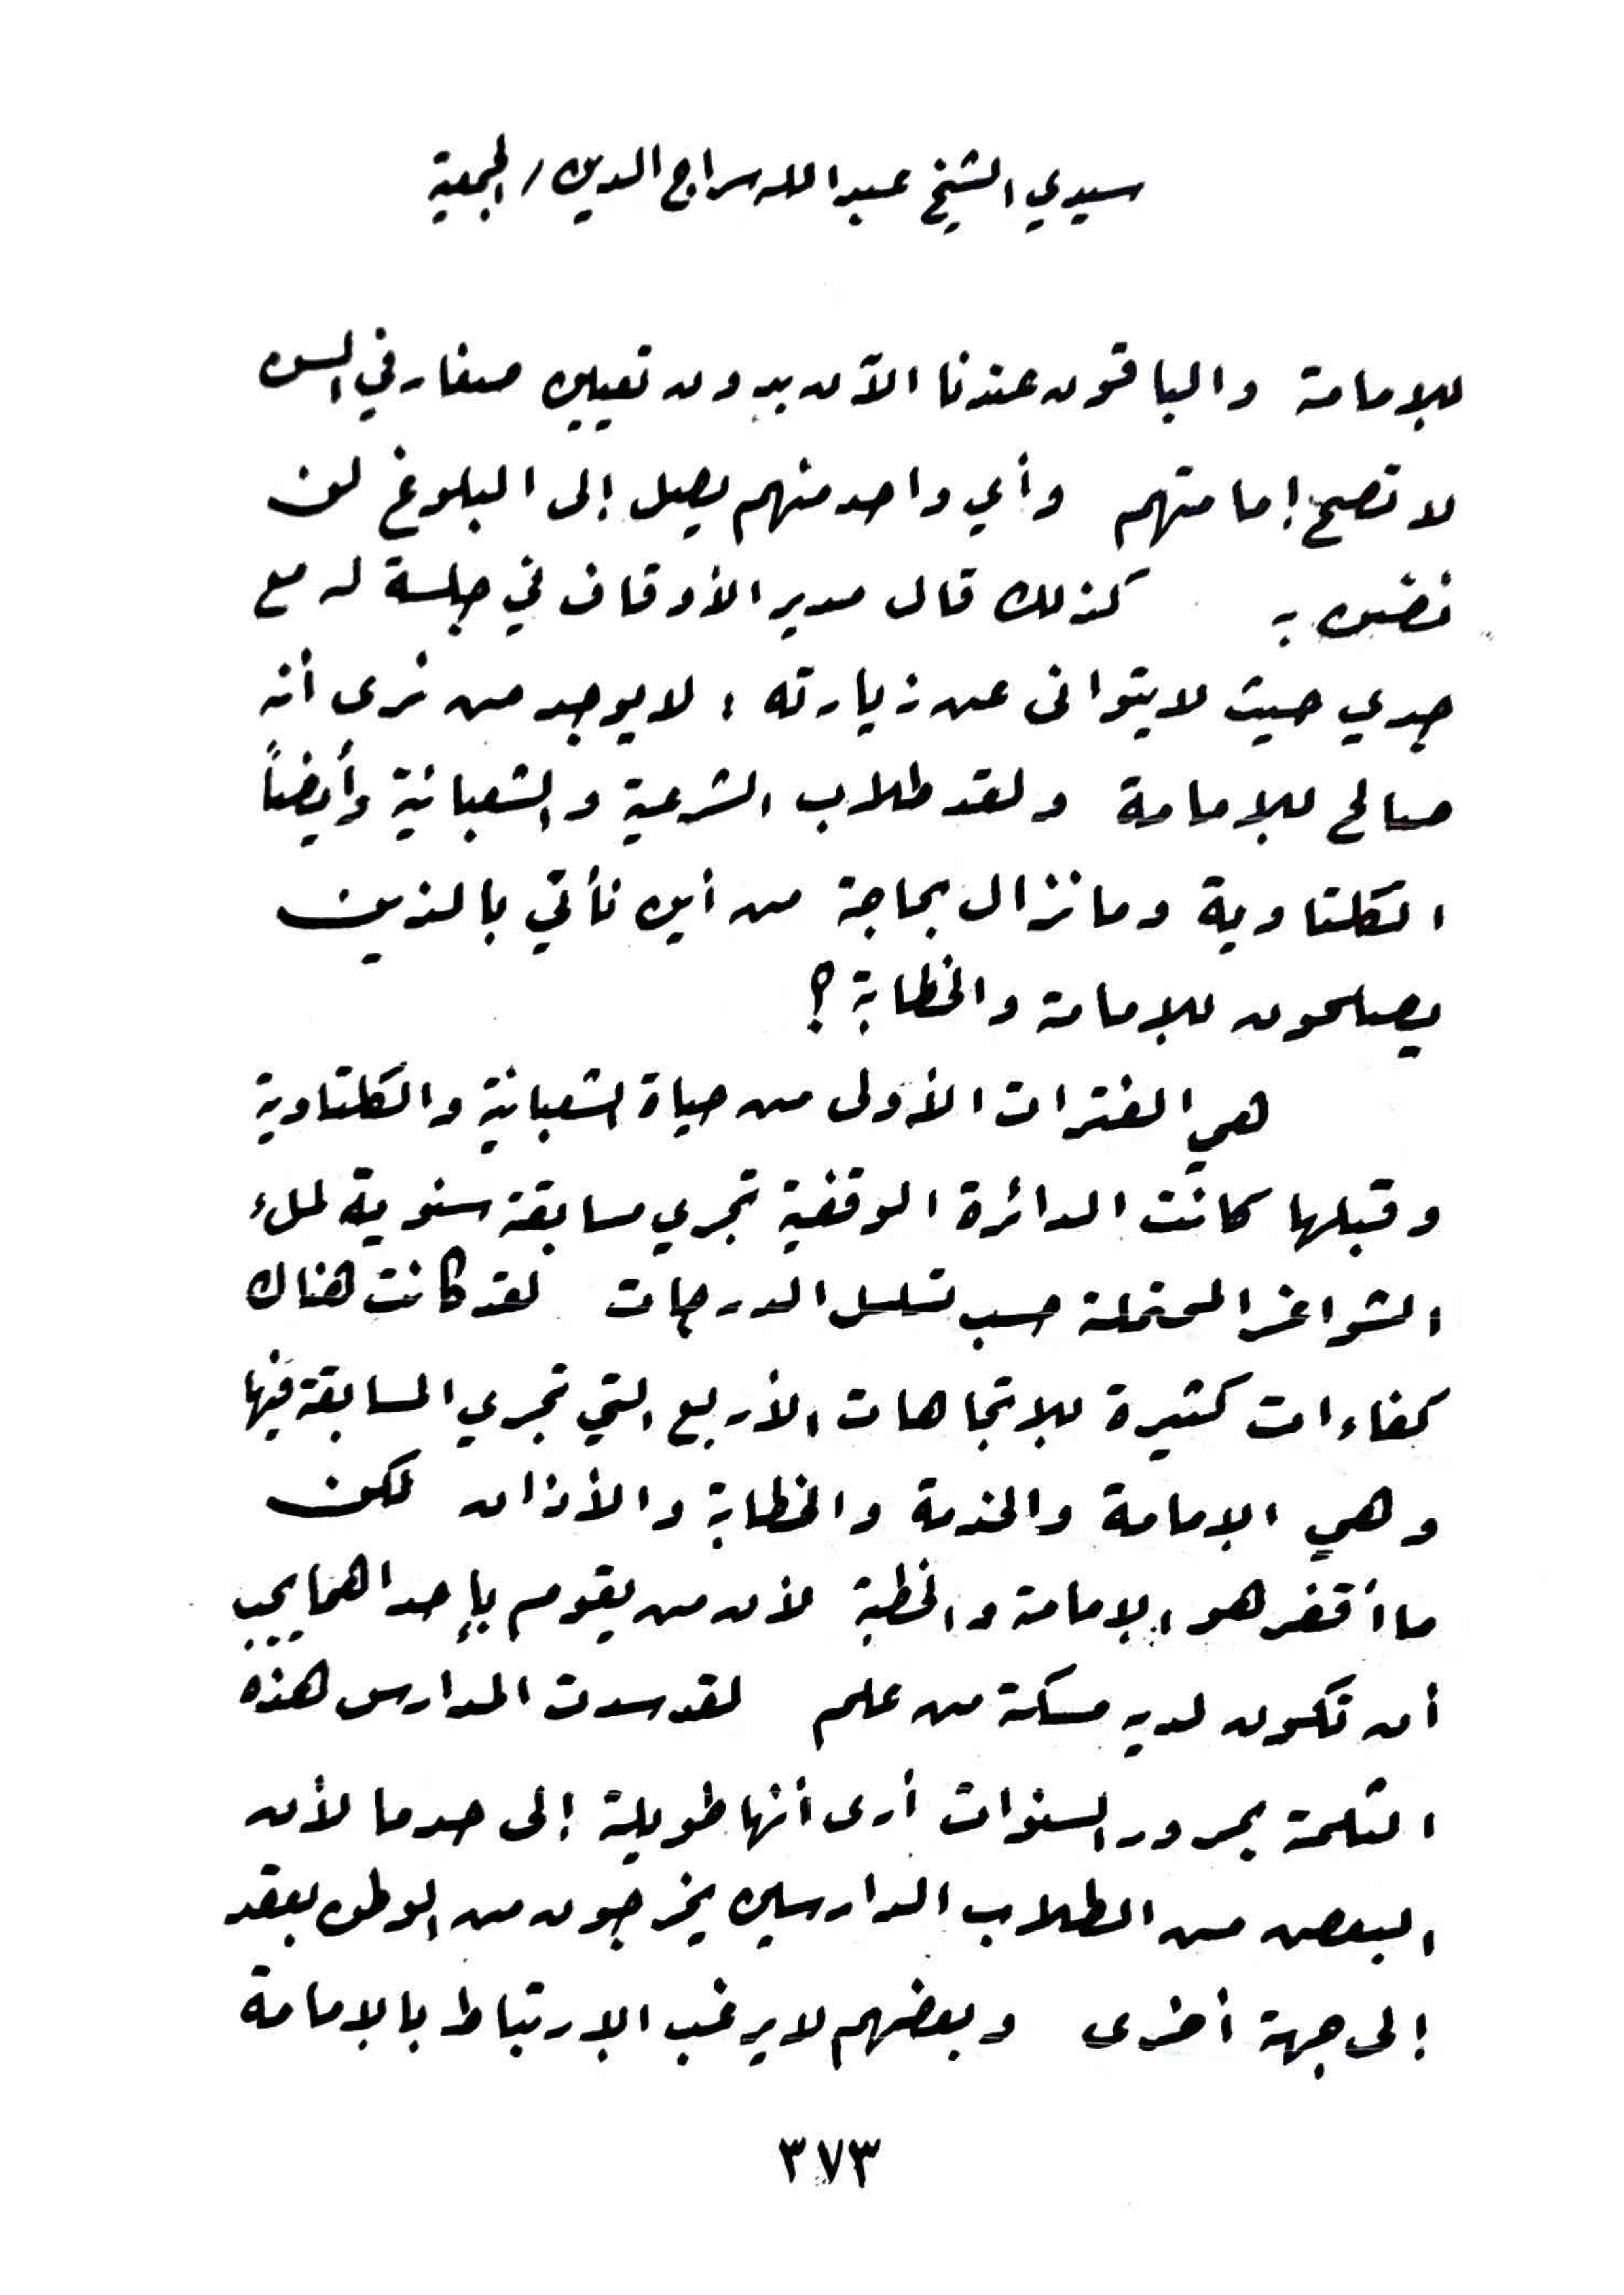 سيدي الشيخ عبد الله سراج الدين / الجمعية
للإمامة والباقون عندنا الآن بدون تعيين صغار في السن
لا تصح إمامتهم وأي واحد منهم يصل إلى البلوغ لن
نضن به كذلك قال مدير الأوقاف في جلسة له مع
جدي حيث لا يتوانى عن زيارته : لا يوجد من نرى أنه
صالح للإمامة ولقد طلاب الشرعية والشعبانية وأيضاً
الكلتاوية وما نزال بحاجة من أين نأتي بالذين
يصلحون للإمامة والخطابة ؟
هي الفترات الأولى من حياة الشعبانية والكلتاوية
وقبلها كانت الدائرة الوقفية تجري مسابقة سنوية لملء
الشواغر المحتملة حسب تسلسل الدرجات لقد كانت هناك
كفاءات كثيرة للاتجاهات الأربع التي تجري المسابقة فيها
وهي الإمامة والخدمة والخطابة والأذان لكن
ما أقفر هو الإمامة والخطبة لأن من يقوم بإحداهما يجب
أن تكون لديه مسكة من علم لقد سدت المدارس هذه
الثلمة بمرور السنوات أرى أنها طويلة إلى حد ما لأن
البعض من الطلاب الدارسين يخرجون من الوطن بعقد
إلى جهة أخرى وبعضهم لا يرغب الإرتباط بالإمامة
٣٧٣